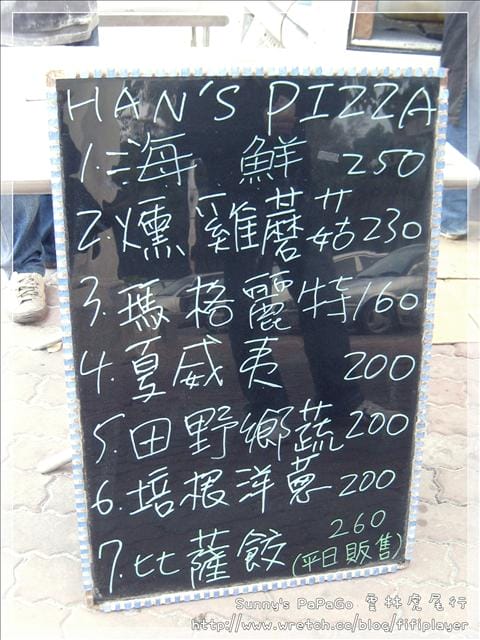 HAN'S PIZZA
1. 海鮮 250
2. 燻雞蘑菇 230
3. 瑪格麗特 160
4. 夏威夷 200
5. 田野鄉蔬 200
6. 培根洋蔥 200
7. 比薩餃 260
(平日販售)
Sunny's PaPaGo 雲林虎尾行
http://www.wretch.cc/blog/fifiplayer